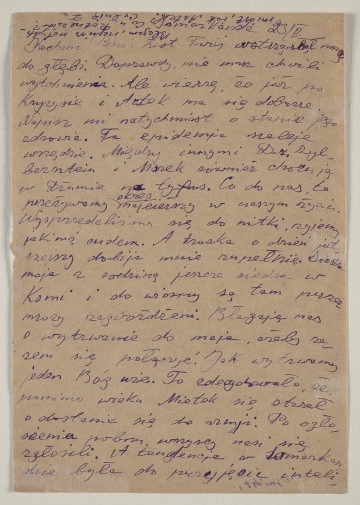 Samarkanda 23/II
Kochani moi! List Twój wstrząsnął mną
do głębi. Doprawdy, nie masz chwili
wytchnienia. Ale wierzę, że już po
kryzysie i Artek ma się dobrze.
Napisz mi natychmiast o stanie jego
zdrowia. Ta epidemia szaleje
wszędzie. Między innymi Dr. Zyl-
bersztein i Marek również chorują
w Dżumie na tyfus. Co do nas, to
przeżywamy okres najcięższy w naszym życiu.
Wysprzedaliśmy się do nitki, żyjemy
jakimś cudem. A troska o dzień
szary dobija mnie zupełnie.
moja z rodziną jeszcze siedzą w
Komi i do wiosny są tam przez
mrozy zagwożdżeni. Błagają nas
o wytrwanie do maja, ażeby ra-
zem się połączyć. Jak wytrwamy
jeden Bóg wie. To zdecydowało, że
pomimo wieku Mietek się starał
o dostanie się do armji. Po ogło-
szeniu poboru, wszyscy nasi się
zgłosili. A tendencja w Samarkan-
dzie była do przyjęcia inteli-